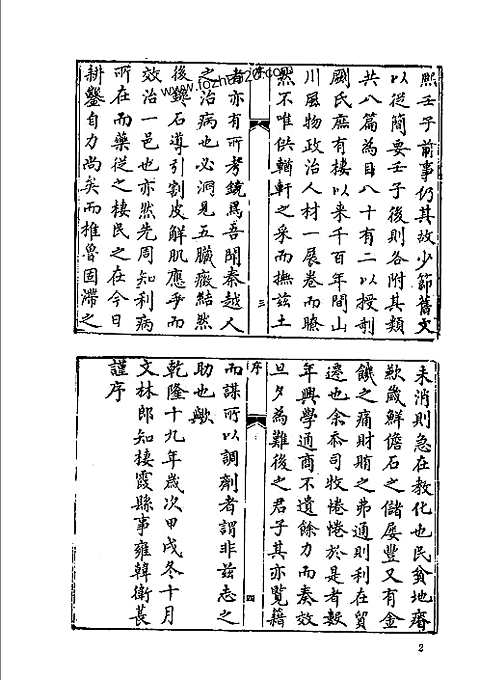 熙壬子前事仍其故少節舊文
以從簡要壬子後則各附其類
共八篇為目八十有二以授剞
劂氏庶有棲以来千百年間山
川風物政治人材一展卷而瞭
然不唯供輶軒之采而撫兹土
序
三
者亦有所考鏡焉吾聞秦越人
之治病也必洞見五臟癥結然
後鑱石導引割皮解肌應手而
效治一邑也亦然先周知利病
所在而藥従之棲民之在今日
耕鑿自力尚矣而椎魯固滯之
www.fozhu920.com
未消則急在教化也民貧地瘠
歉歲鮮儋石之儲屡豐又有金
饑之痛財賄之弗通則利在貿
遷也余忝司牧惓惓於是者数
年興學通商不遺餘力而奏效
旦夕為難後之君子其亦覽籍
序
四
而謀所以調劑者謂非兹志之
助也歟
乾隆十九年歲次甲戌冬十月
文林郎知棲霞縣事雍韓衛萇
謹序
2